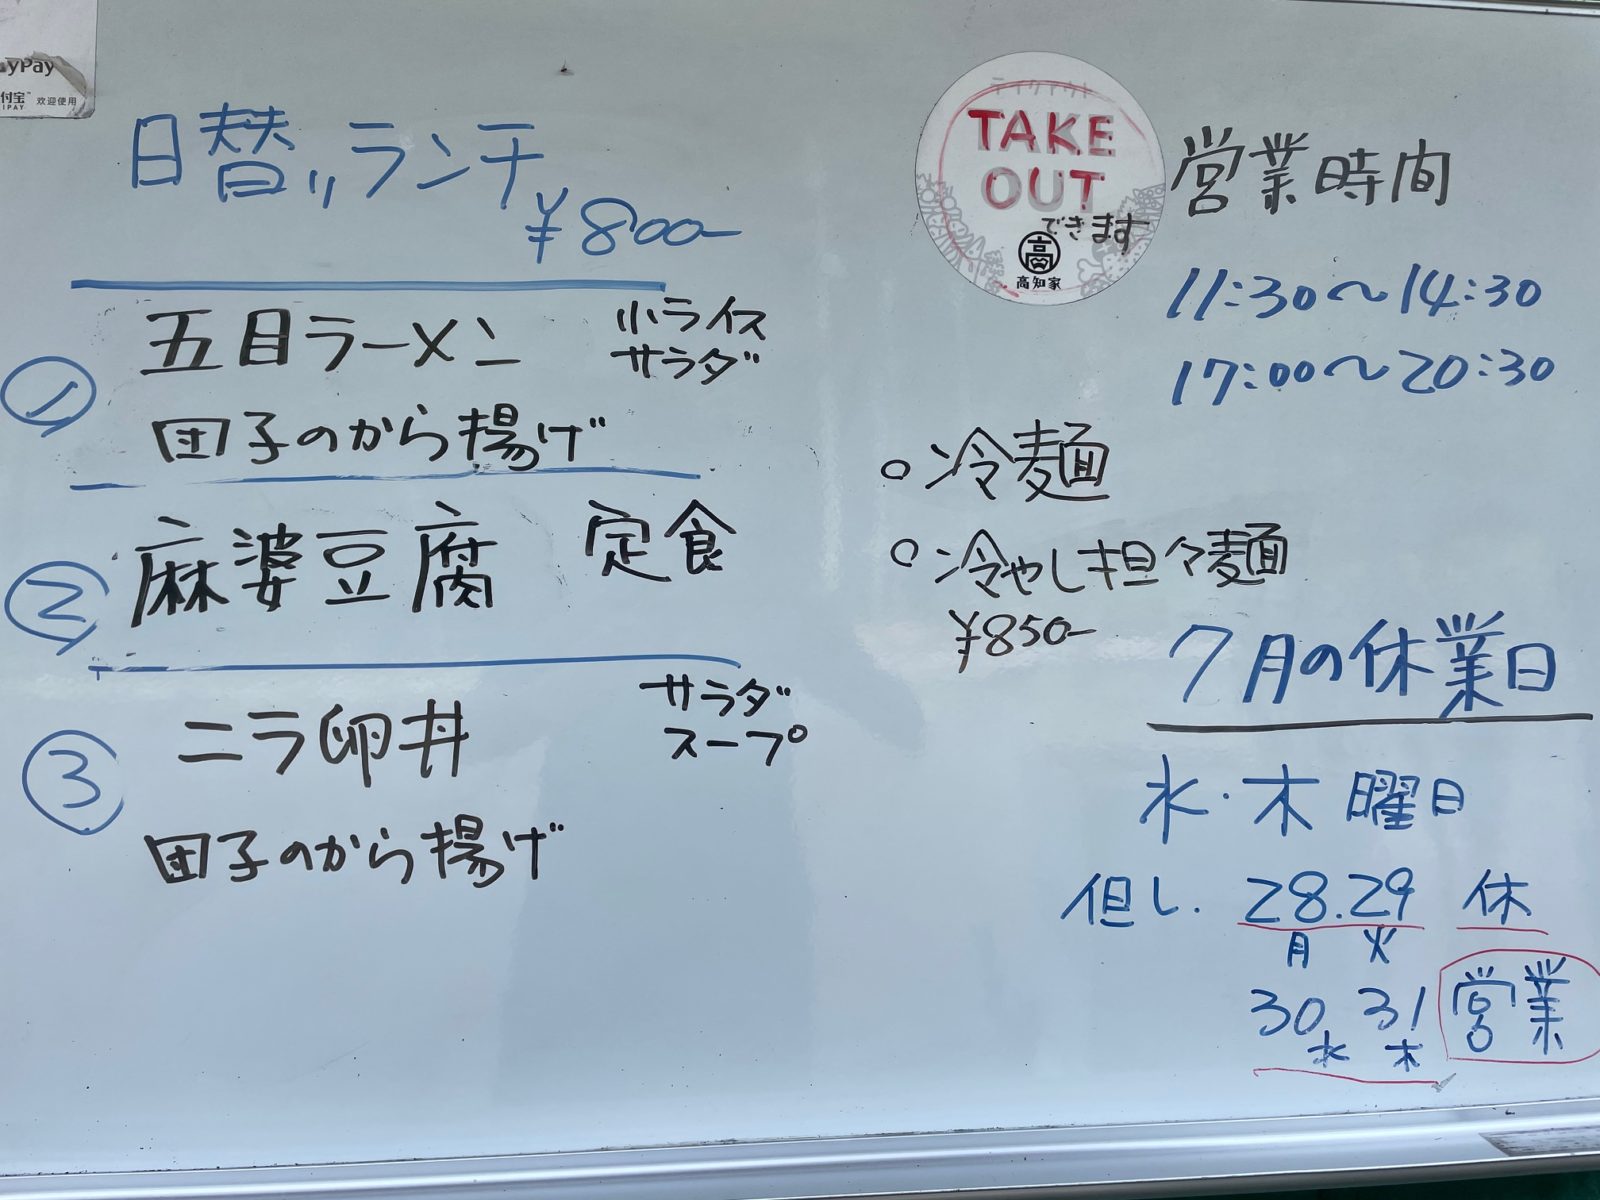 yPay
付宝
IPAY 欢迎使用
日替りランチ
¥800-
① 五目ラーメン 小ライス
サラダ
団子のから揚げ
② 麻婆豆腐 定食
③ ニラ卵丼 サラダ
スープ
団子のから揚げ
TAKE
OUT
できます
高
高知家
営業時間
11:30〜14:30
17:00〜20:30
○冷麺
○冷やし担々麺
¥850-
7月の休業日
水・木曜日
但し. 28.29 休
月 火
30 31 営業
水 木